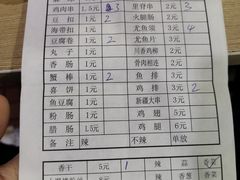 鸡肉串 1.5元 3 里脊串 2元 3
豆扣 1元 2 火腿肠 2元
海带扣 1元 尤鱼须 3元 4
豆腐卷 1元 2 尤鱼片 3元
丸子 1元 川香鸡柳 2元
香肠 1元 骨肉相连 2元
蟹棒 1元 2 鱼排 3元
喜饼 1元 鸡排 3元 2
鱼豆腐 1元 新疆大串 3元
粉肠 1元 鸡翅 5元
腊肠 1.5元 鸡腿 6元
备注 辣 不辣 单放
香干 5元 1 辣 蒜